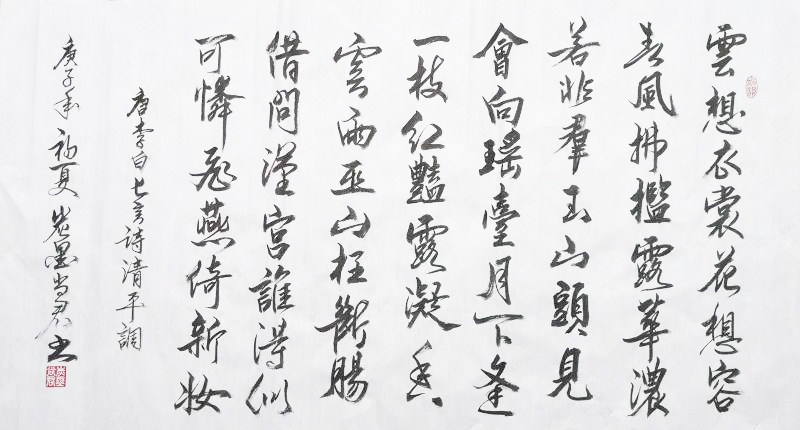 雲想衣裳花想容
春風拂檻露華濃
若非羣玉山頭見
會向瑶臺月下逢
一枝红豔露凝香
雲雨巫山枉斷腸
借問漢宮誰得似
可憐飛燕倚新妝
唐李白七言詩清平調
庚子年初夏炭墨尚君书